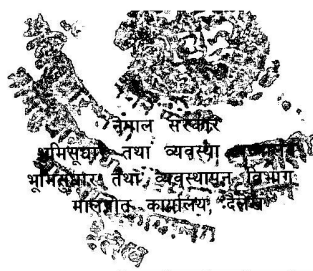 नेपाल सरकार
भूमिसुधार तथा व्यवस्था
भूमिसुधार तथा व्यवस्थापन विभाग
मालपोत कार्यालय, दैलेख